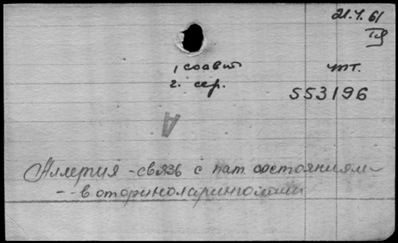 21.4.61
1 соавт чт.
2. сер.
553196
А
Аллергия - связь с пат. состояниями
-- в оториноларингологии